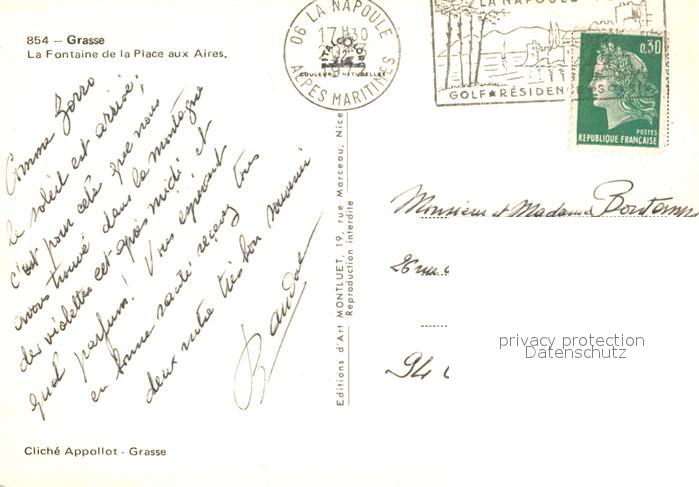 854 — Grasse
La Fontaine de la Place aux Aires.
06 LA NAPOULE
17H30
ALPES MARITIMES
ITALCOLOR
COULEURS NATURELLES
LA NAPOULE
GOLF ★ RÉSIDENCE
0,30
POSTES
RÉPUBLIQUE FRANÇAISE
Comme Zorro
le soleil est arrivé,
c'est pour cela que nous
avons trouvé dans la montagne
des violettes cet après midi et
quel parfum! Vous espérant
en bonne santé recevez tous
deux notre très bon souvenir
Editions d'Art MONTLUET, 19, rue Marceau, Nice
Reproduction interdite
Monsieur et Madame Bontemps
26 rue
94
privacy protection
Datenschutz
Cliché Appollot - Grasse